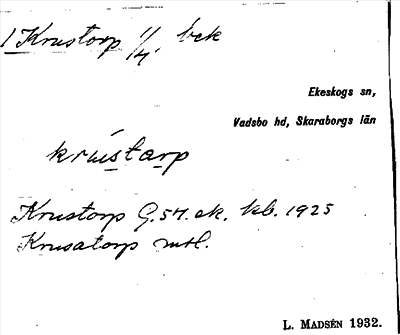 1 Krustorp 1/4, bek
Ekeskogs sn,
Vadsbo hd, Skaraborgs län
krústarp
Krustorp G.57. ek. kb. 1925
Krusatorp mtl.
L. MADSÉN 1932.